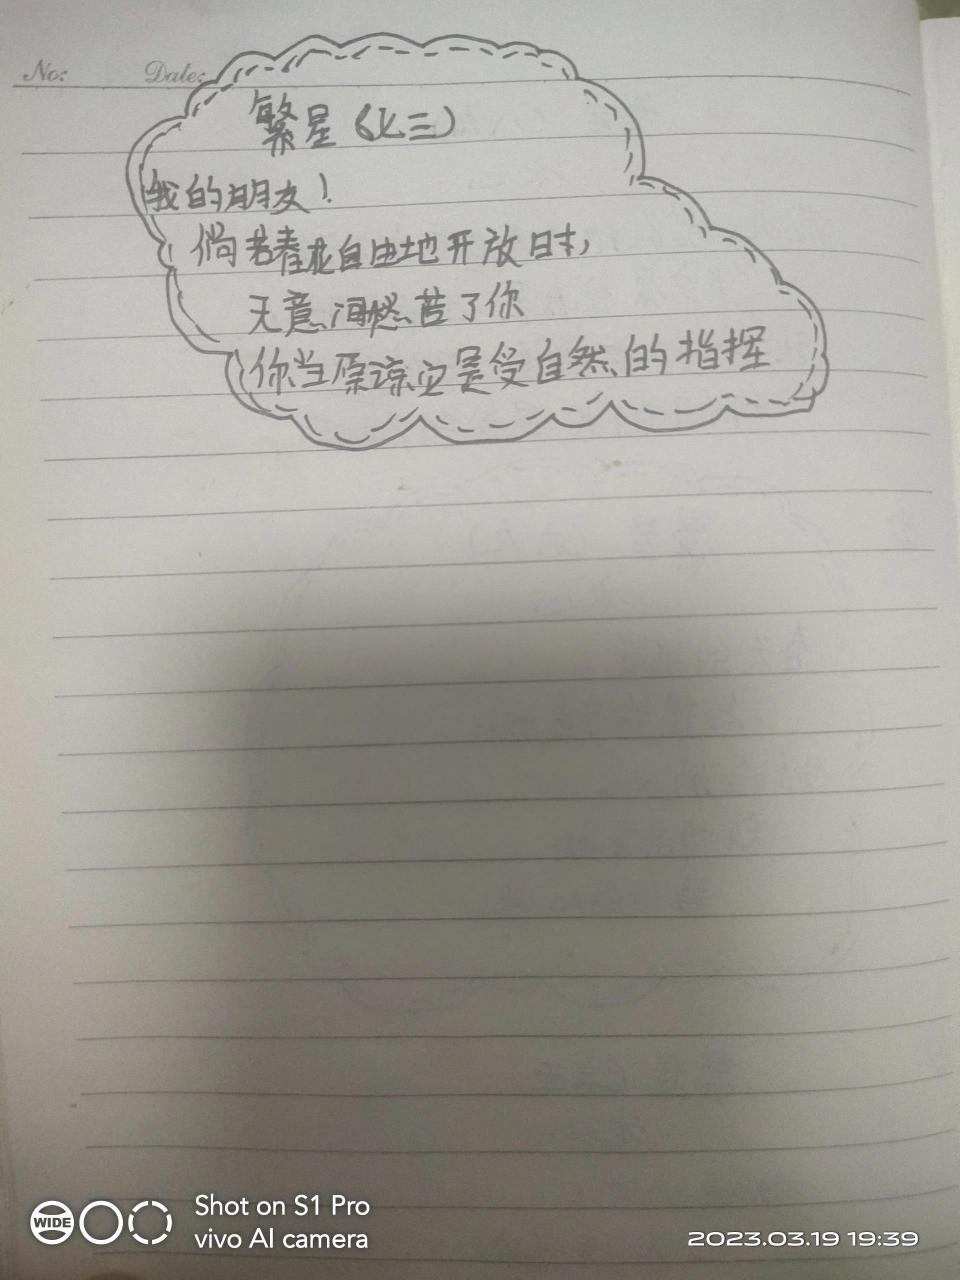 No: Date:
繁星(七三)
我的朋友!
倘若春花自由地开放时,
无意中愁苦了你
你当原谅它是受自然的指挥
Shot on S1 Pro
WIDE
vivo AI camera
2023.03.19 19:39